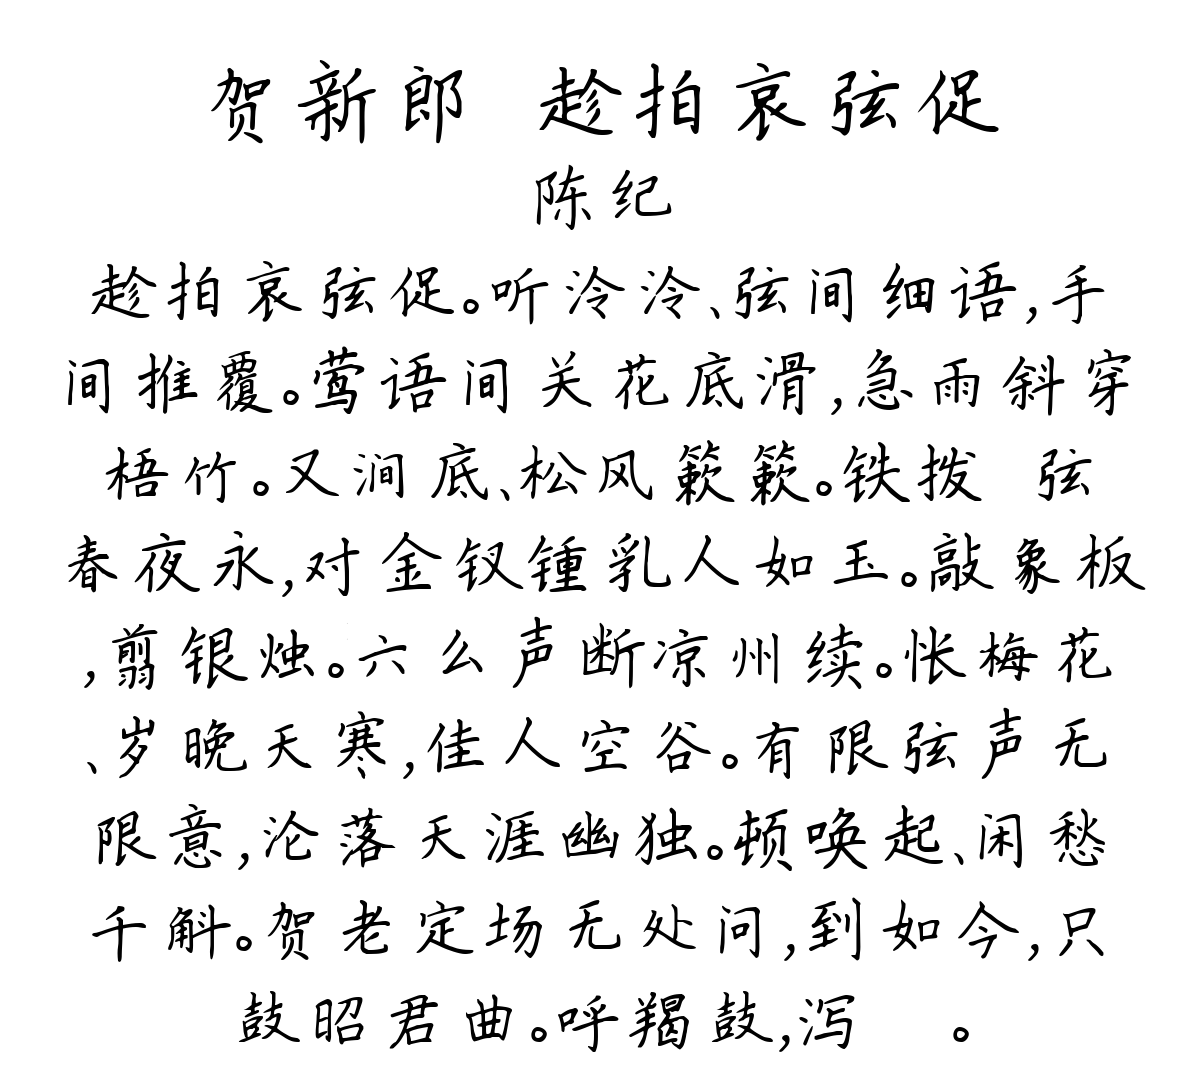 贺新郎 趁拍哀弦促
陈纪
趁拍哀弦促。听泠泠、弦间细语,手
间推覆。莺语间关花底滑,急雨斜穿
梧竹。又涧底、松风簌簌。铁拨 弦
春夜永,对金钗锺乳人如玉。敲象板
,翦银烛。六么声断凉州续。怅梅花
、岁晚天寒,佳人空谷。有限弦声无
限意,沦落天涯幽独。顿唤起、闲愁
千斛。贺老定场无处问,到如今,只
鼓昭君曲。呼羯鼓,泻 。